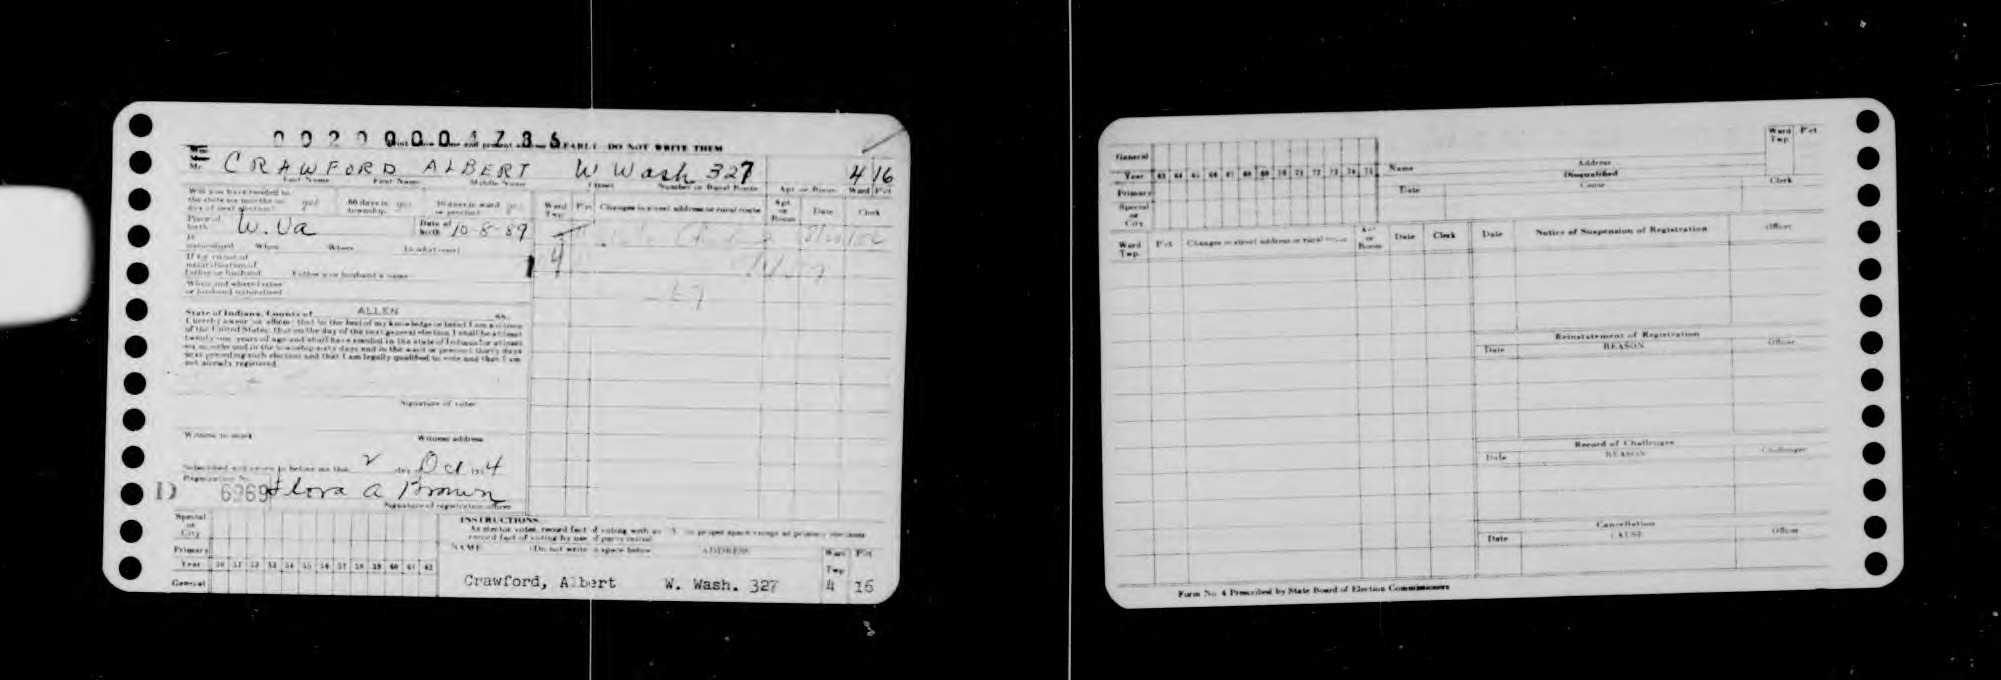 DO NOT WRITE THEM
CRAWFORD ALBERT W Wash 327 4 16
Last Name First Name Middle Name Street Number or Rural Route Apt or Room Ward P'ct
Will you have resided in
the state six months on
day of next election? yes 60 days in township yes 30 days in ward or precinct yes
Place of birth W. Va Date of birth 10-8-89
If naturalized When Where In what court
If by virtue of
naturalization of
father or husband Father's or husband's name
When and where father
or husband naturalized
State of Indiana, County of ALLEN ss.
I hereby swear (or affirm) that to the best of my knowledge or belief I am a citizen
of the United States, that on the day of the next general election I shall be at least
twenty-one years of age and shall have resided in the state of Indiana for at least
six months and in the township sixty days and in the ward or precinct thirty days
next preceding such election and that I am legally qualified to vote and that I am
not already registered.
Signature of voter
Witness to mark Witness address
Subscribed and sworn to before me this 2 day Oct 4
Registration No.
D 6969 Flora A Brown
Signature of registration officer
Ward Twp P'ct Changes in street address or rural route Apt or Room Date Clerk
4
Special or City
Primary
Year 50 51 52 53 54 55 56 57 58 59 60 61 62
General
INSTRUCTIONS
As elector votes, record fact of voting with an X in proper space except at primary elections
record fact of voting by use of party initial
NAME (Do not write in space below) ADDRESS Ward Twp P'ct
Crawford, Albert W. Wash. 327 4 16
General
Year 63 64 65 66 67 68 69 70 71 72 73 74 75
Primary
Special or City
Name Address Ward Twp P'ct
Disqualified
Date Cause Clerk
Ward Twp. P'ct Changes in street address or rural route Apt or Room Date Clerk
Date Notice of Suspension of Registration Officer
Reinstatement of Registration
Date REASON Officer
Record of Challenges
Date REASON Challenger
Cancellation
Date CAUSE Officer
Form No. 4 Prescribed by State Board of Election Commissioners